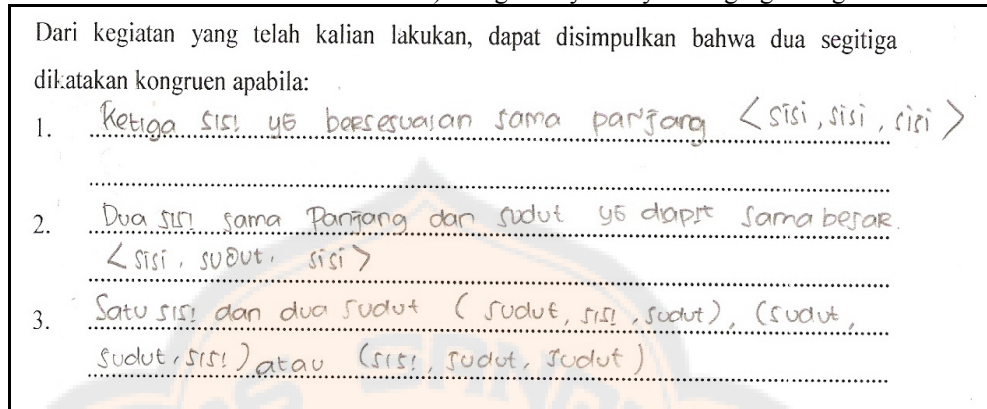 Dari kegiatan yang telah kalian lakukan, dapat disimpulkan bahwa dua segitiga
dikatakan kongruen apabila:
1. Ketiga sisi yG bersesuaian sama panjang <sisi, sisi, sisi>
2. Dua sisi sama Panjang dan sudut yG diapit sama besar.
<sisi, sudut, sisi>
3. Satu sisi dan dua sudut (sudut, sisi, sudut), (sudut,
sudut, sisi) atau (sisi, sudut, sudut)